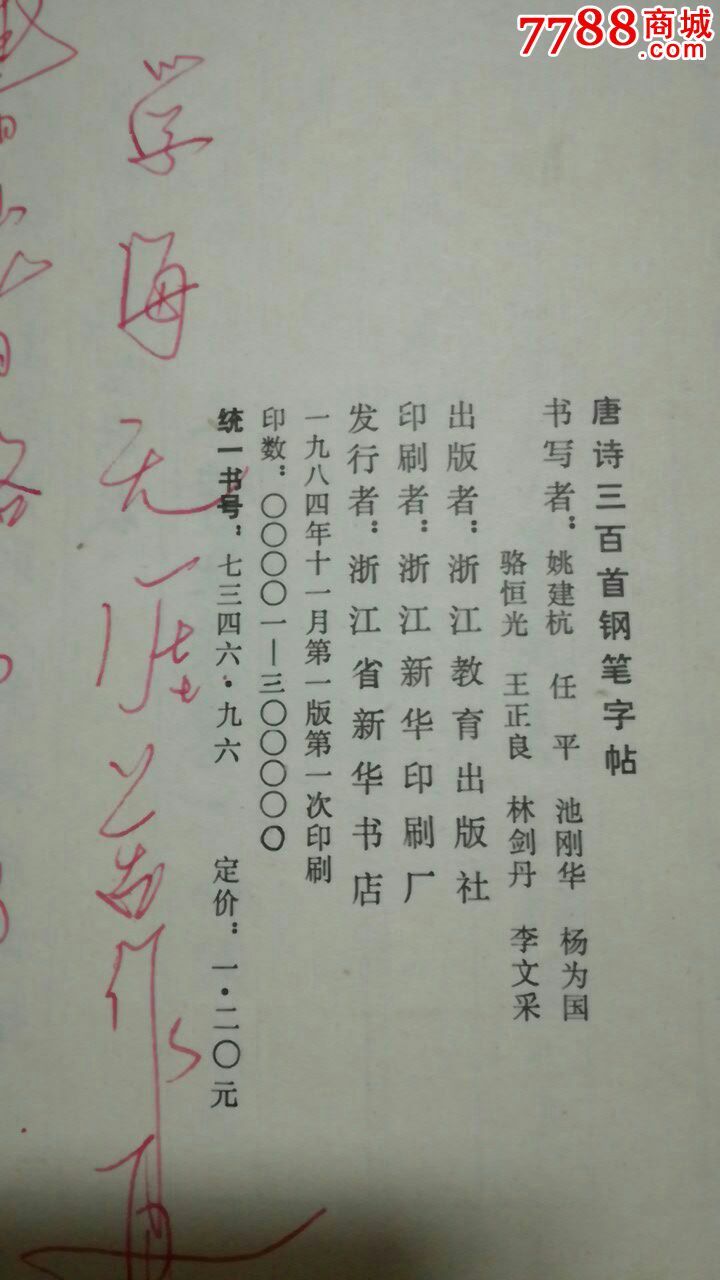 7788商城
.com
唐诗三百首钢笔字帖
书写者：姚建杭 任平 池刚华 杨为国
骆恒光 王正良 林剑丹 李文采
出版者：浙江教育出版社
印刷者：浙江新华印刷厂
发行者：浙江省新华书店
一九八四年十一月第一版第一次印刷
印数：〇〇〇〇一—三〇〇〇〇〇
统一书号：七三四六·九六 定价：一·二〇元
学海无涯苦作